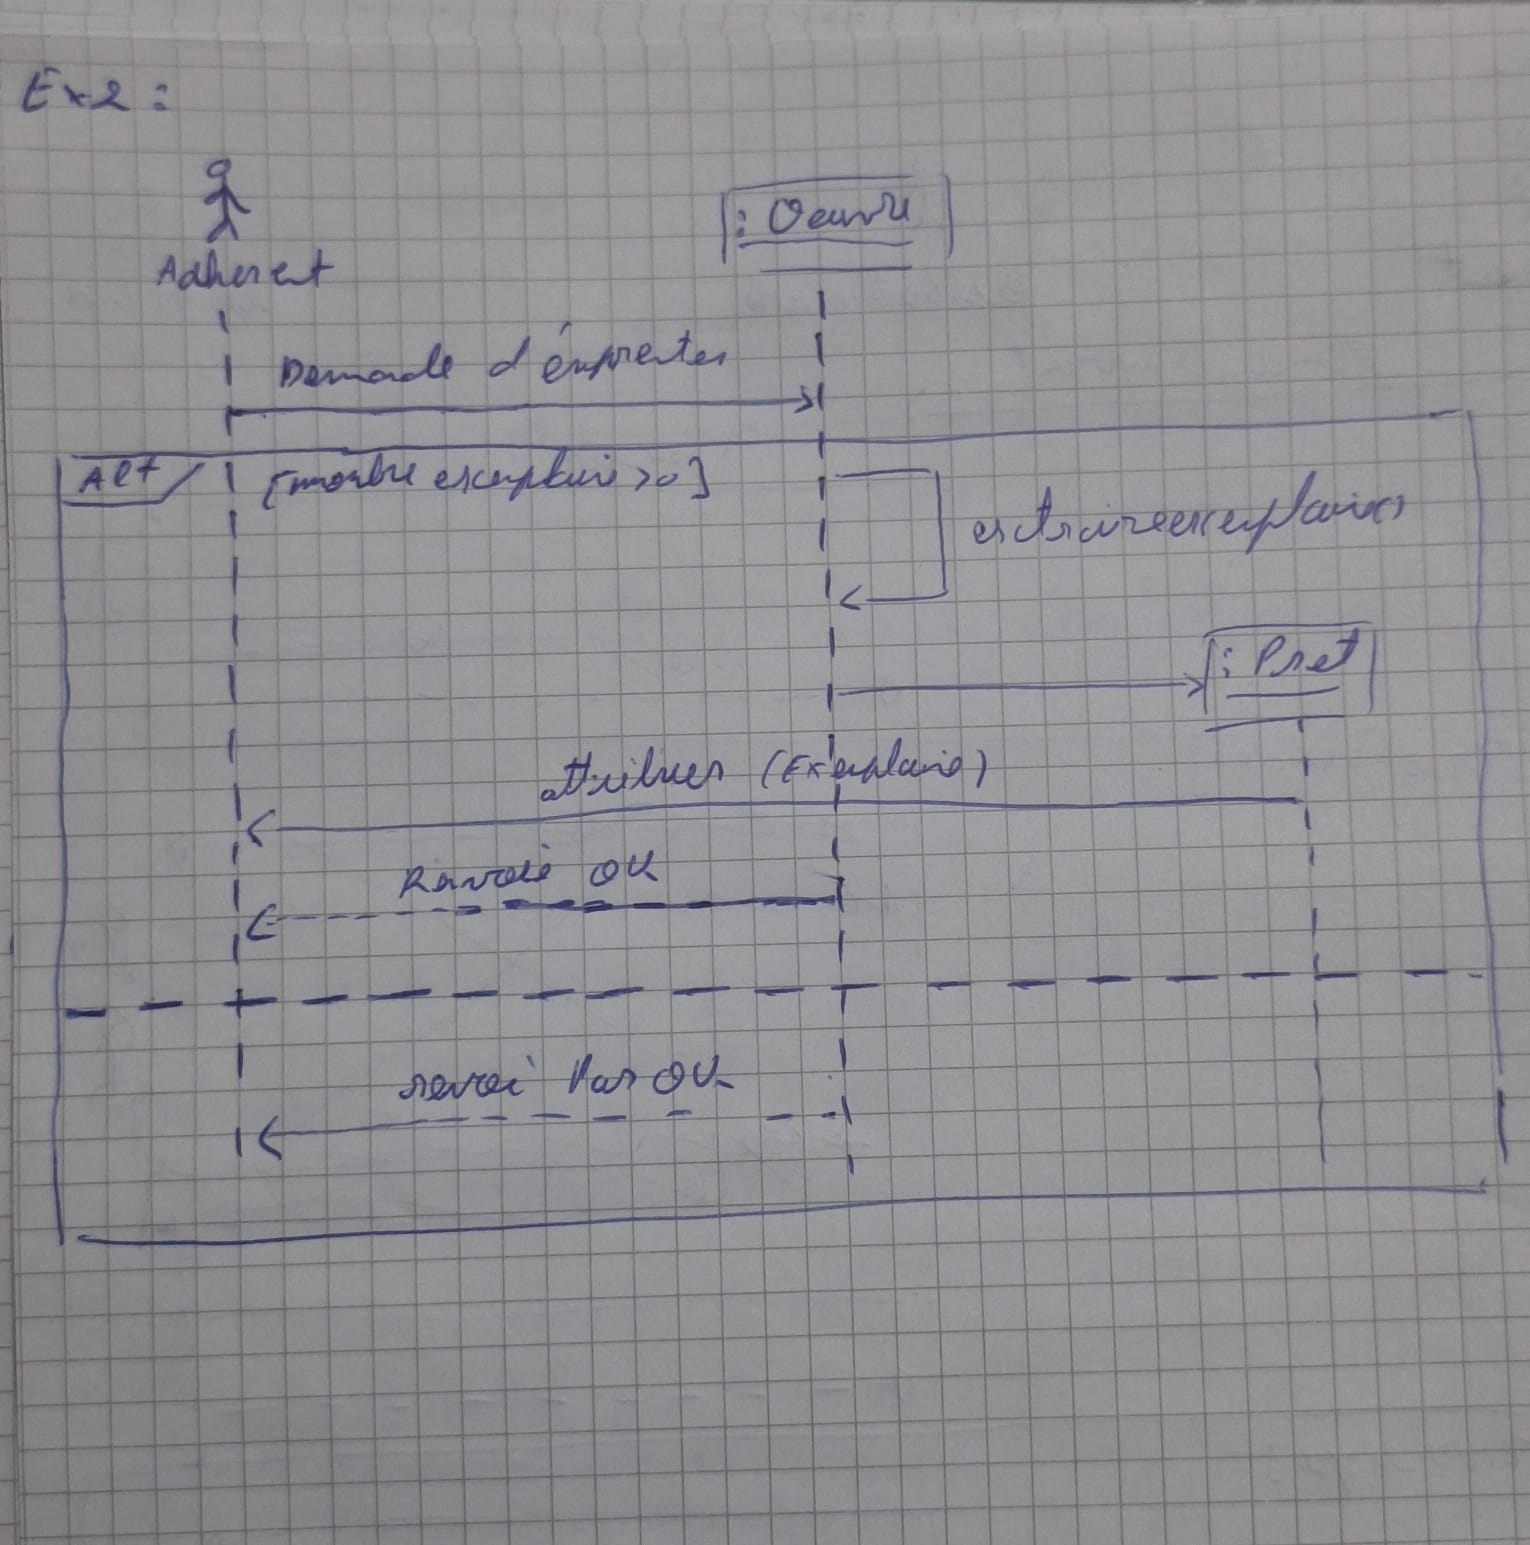 Ex2 :
: Oeuvre
Adherent
Demande d'émprenter
Alt
[nombre exemplaire >0]
extraireexemplaire()
: Pret
attribuer (Exemplaire)
Renvoie OK
renvoi Pas OK